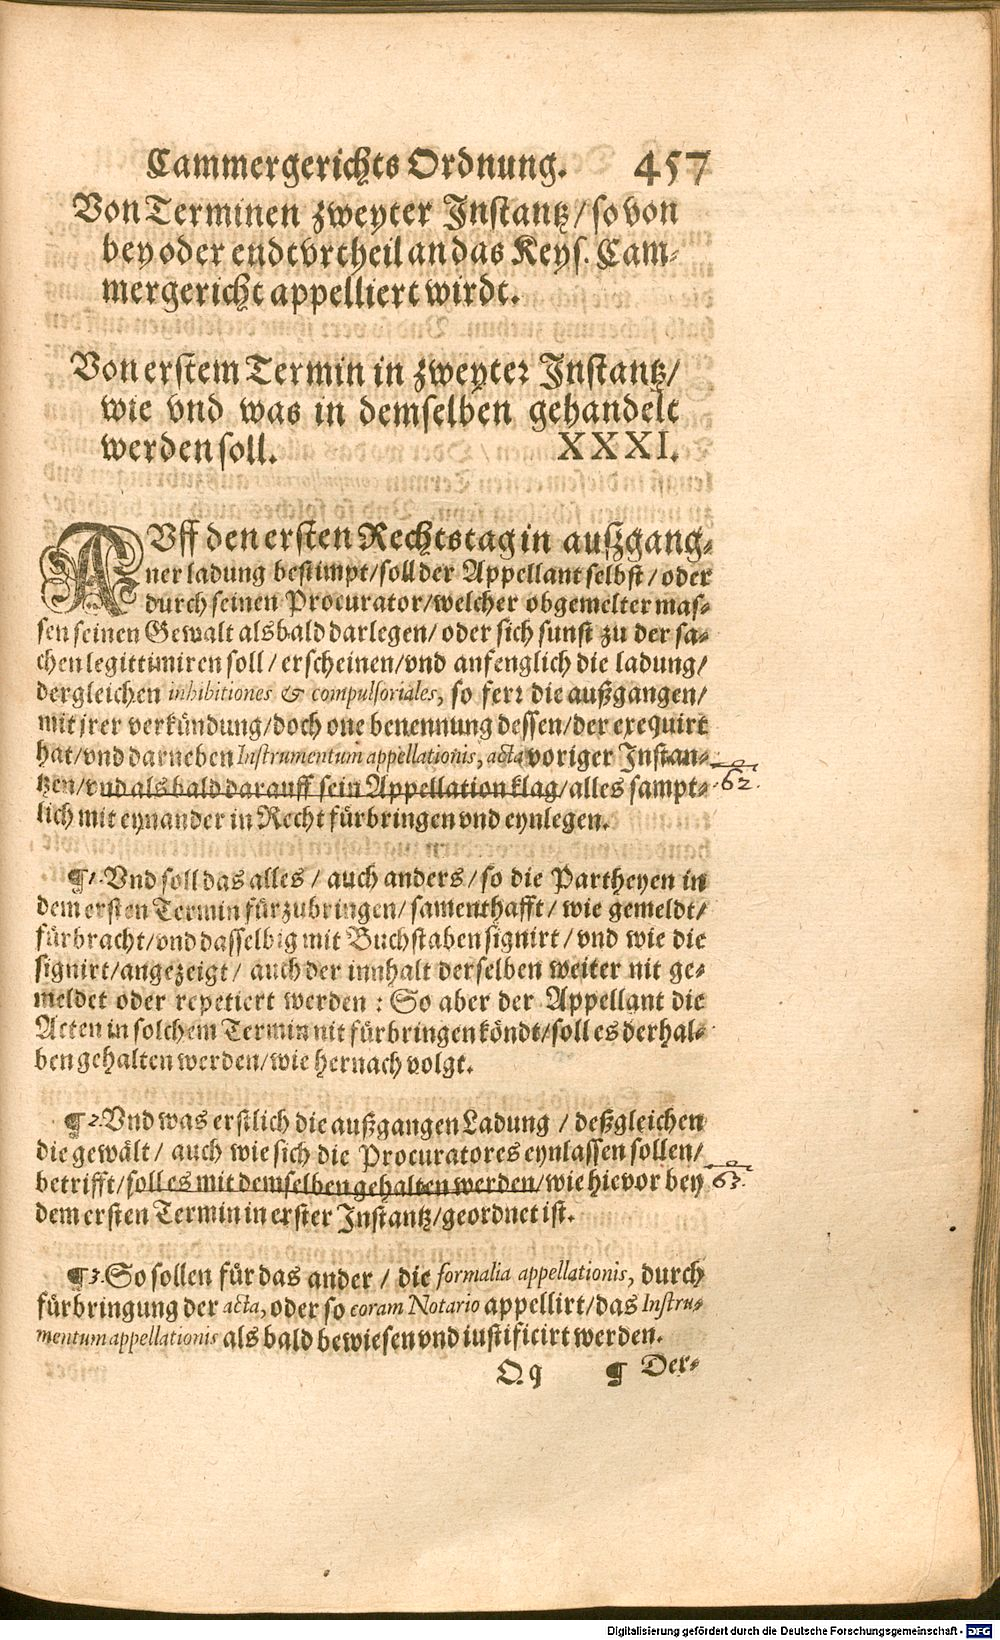 Cammergerichts Ordnung. 457
Von Terminen zweyter Instantz/ so von
bey oder endtvrtheil an das Keys. Cam-
mergericht appelliert wirdt.
Von erstem Termin in zweyter Instantz/
wie vnd was in demselben gehandelt
werden soll. XXXI.
AVff den ersten Rechtstag in außgang-
ner ladung bestimpt/ soll der Appellant selbst/ oder
durch seinen Procurator/ welcher obgemelter mas-
sen seinen Gewalt alsbald darlegen/ oder sich sunst zu der sa-
chen legittimiren soll/ erscheinen/ vnd anfenglich die ladung/
dergleichen inhibitiones & compulsoriales, so ferr die außgangen/
mit jrer verkündung/ doch one benennung dessen/ der exequirt
hat/ vnd darneben Instrumentum appellationis, acta voriger Instan-
tzen/ vnd als bald darauff sein Appellation klag/ alles sampt- 62.
lich mit eynander in Recht fürbringen vnd eynlegen.
¶ 1. Vnd soll das alles/ auch anders/ so die Partheyen in
dem ersten Termin fürzubringen/ samenthafft/ wie gemeldt/
fürbracht/ vnd dasselbig mit Buchstaben signirt/ vnd wie die
signirt/ angezeigt/ auch der innhalt derselben weiter nit ge-
meldet oder repetiert werden: So aber der Appellant die
Acten in solchem Termin nit fürbringen köndt/ soll es derhal-
ben gehalten werden/ wie hernach volgt.
¶ 2. Vnd was erstlich die außgangen Ladung/ deßgleichen
die gewält/ auch wie sich die Procuratores eynlassen sollen/
betrifft/ soll es mit demselben gehalten werden/ wie hievor bey 63.
dem ersten Termin in erster Instantz/ geordnet ist.
¶ 3. So sollen für das ander/ die formalia appellationis, durch
fürbringung der acta, oder so coram Notario appellirt/ das Instru-
mentum appellationis als bald bewiesen vnd iustificirt werden.
Q q ¶ Der-
Digitalisierung gefördert durch die Deutsche Forschungsgemeinschaft - DFG